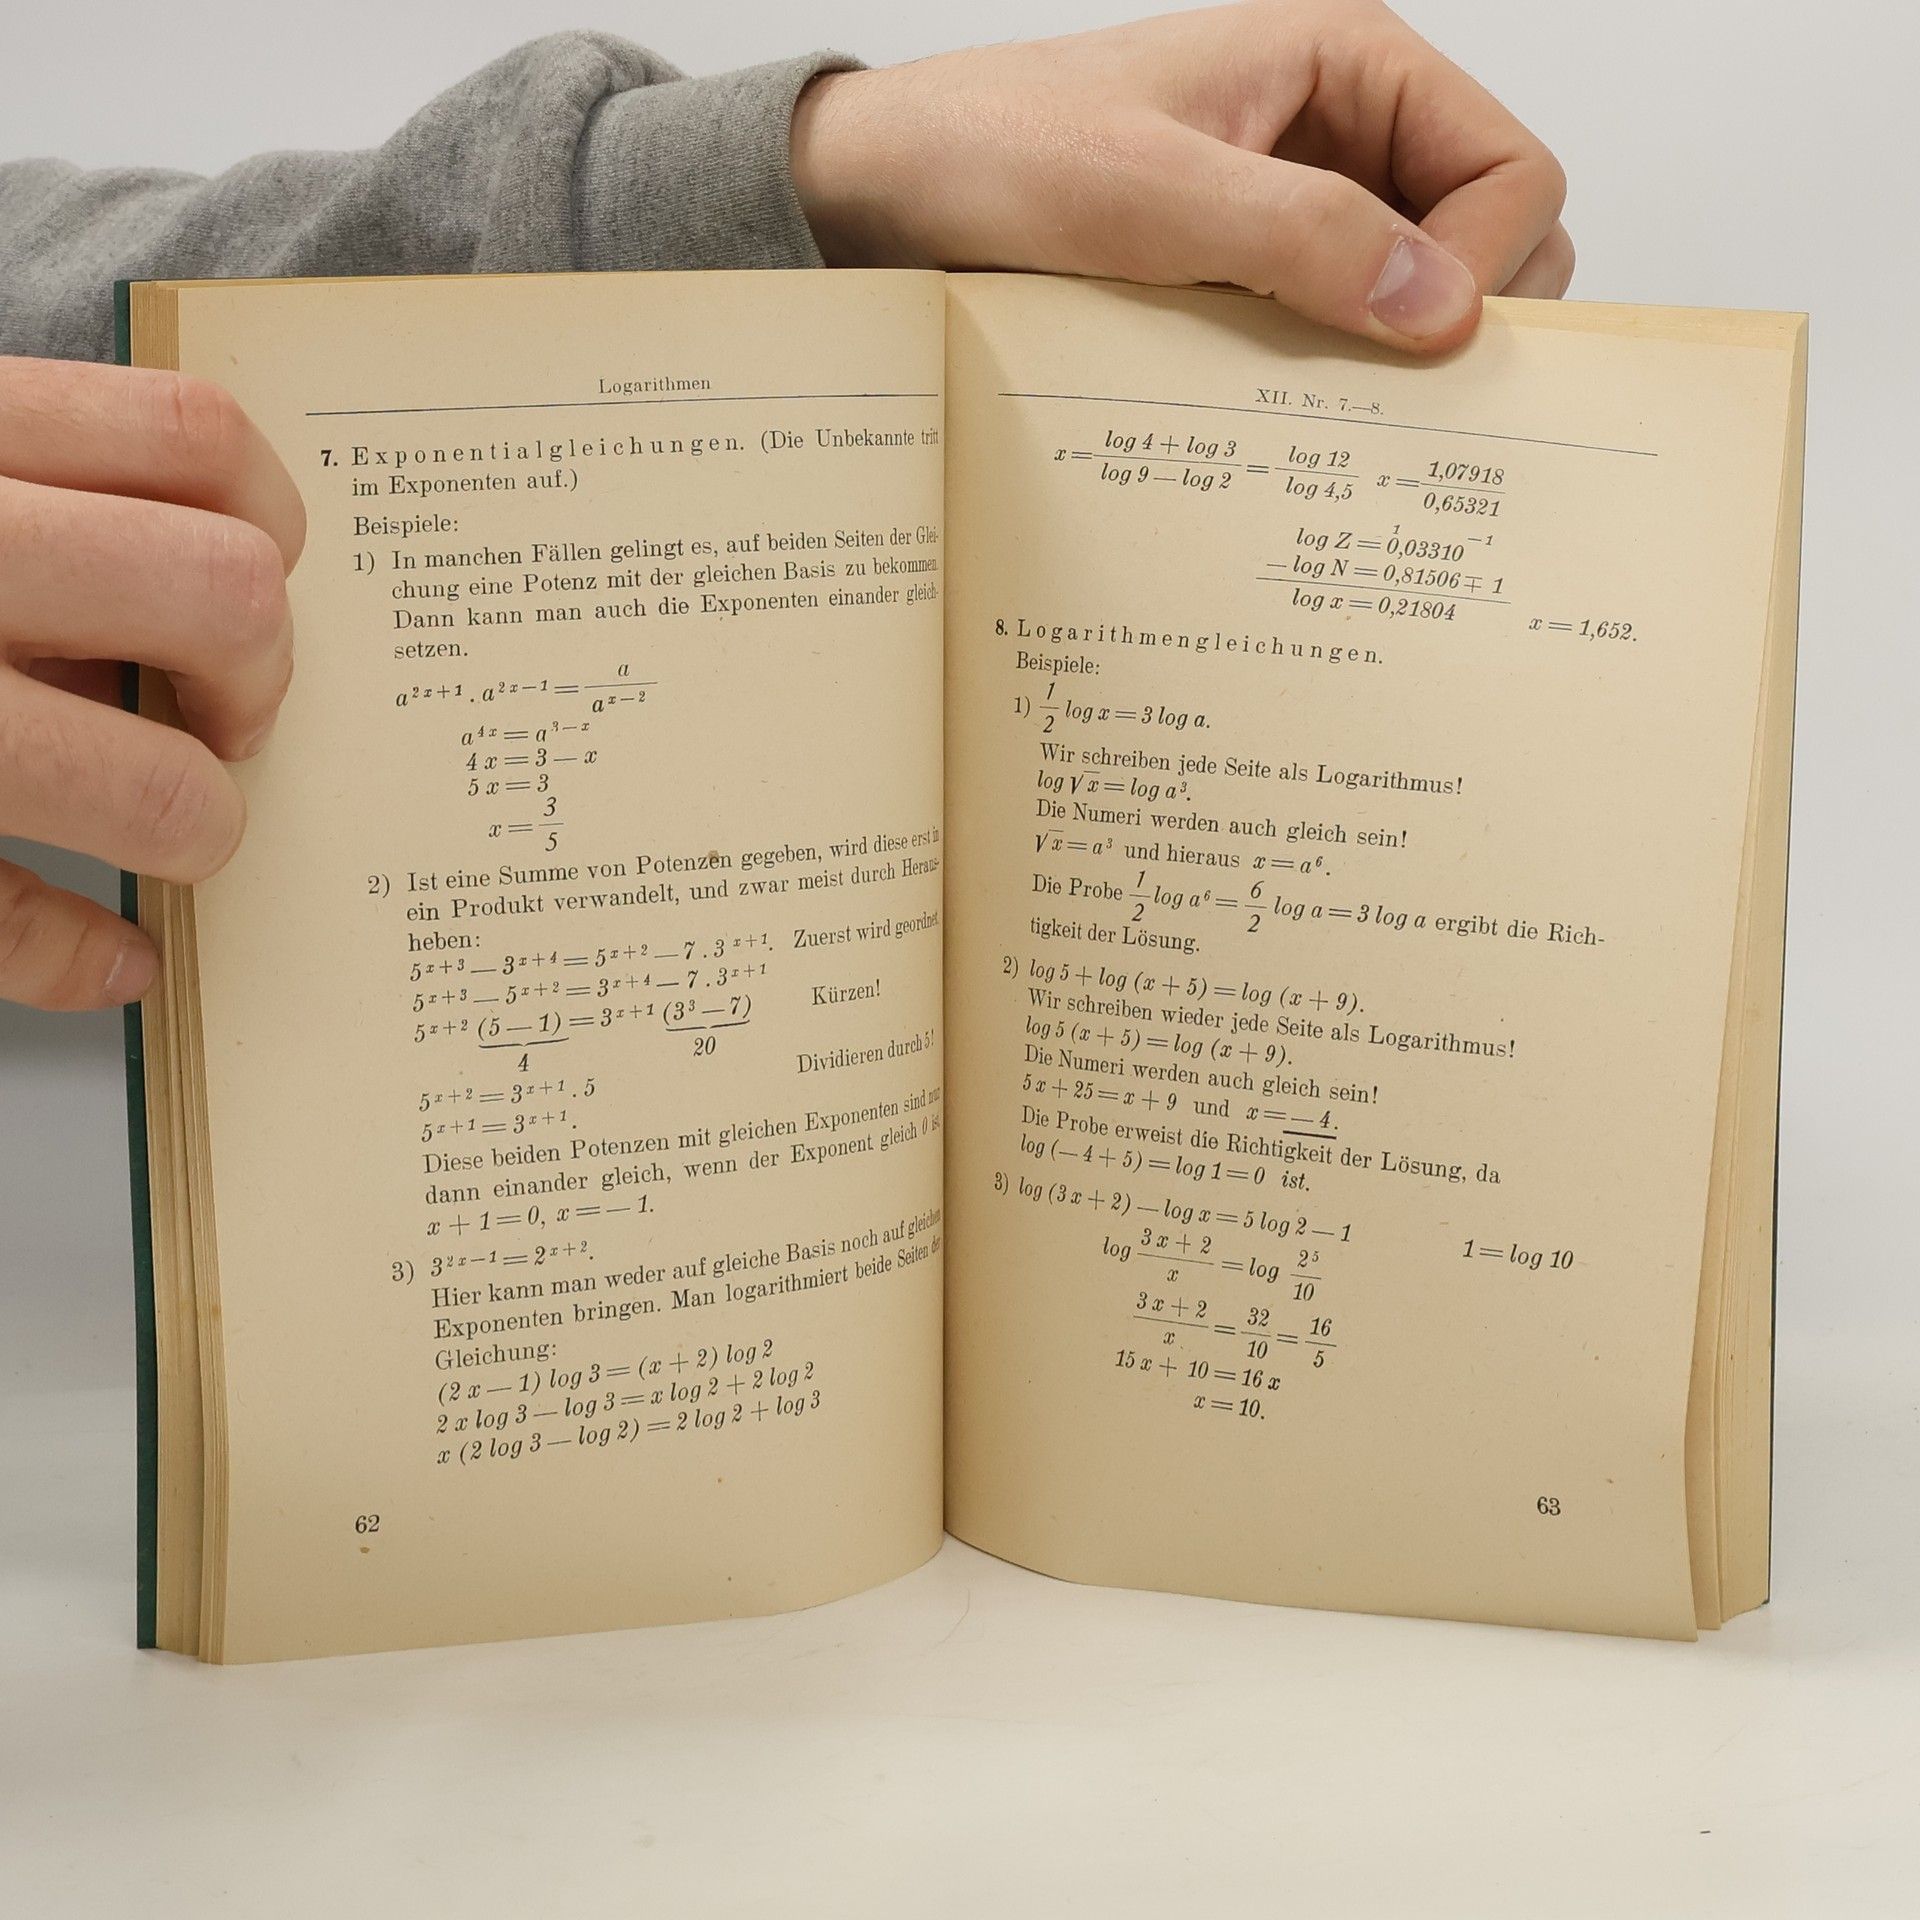 Logarithmen
7. Exponentialgleichungen. (Die Unbekannte tritt
im Exponenten auf.)
Beispiele:
1) In manchen Fällen gelingt es, auf beiden Seiten der Glei-
chung eine Potenz mit der gleichen Basis zu bekommen.
Dann kann man auch die Exponenten einander gleich-
setzen.
a^{2x+1} . a^{2x-1} = \frac{a}{a^{x-2}}
a^{4x} = a^{3-x}
4x = 3 — x
5x = 3
x = \frac{3}{5}
2) Ist eine Summe von Potenzen gegeben, wird diese erst in
ein Produkt verwandelt, und zwar meist durch Heraus-
heben:
5^{x+3} — 3^{x+4} = 5^{x+2} — 7 . 3^{x+1}. Zuerst wird geordnet.
5^{x+3} — 5^{x+2} = 3^{x+4} — 7 . 3^{x+1}
5^{x+2} (5 — 1) = 3^{x+1} (3^3 — 7) Kürzen!
4 20
Dividieren durch 5!
5^{x+2} = 3^{x+1} . 5
5^{x+1} = 3^{x+1}.
Diese beiden Potenzen mit gleichen Exponenten sind nur
dann einander gleich, wenn der Exponent gleich 0 ist.
x + 1 = 0, x = — 1.
3) 3^{2x-1} = 2^{x+2}.
Hier kann man weder auf gleiche Basis noch auf gleichen
Exponenten bringen. Man logarithmiert beide Seiten der
Gleichung:
(2x — 1) log 3 = (x + 2) log 2
2x log 3 — log 3 = x log 2 + 2 log 2
x (2 log 3 — log 2) = 2 log 2 + log 3
62
XII. Nr. 7.—8.
x = \frac{log 4 + log 3}{log 9 — log 2} = \frac{log 12}{log 4,5} x = \frac{1,07918}{0,65321}
1
log Z = 0,03310^{-1}
— log N = 0,81506 ∓ 1
log x = 0,21804
x = 1,652.
8. Logarithmengleichungen.
Beispiele:
1) \frac{1}{2} log x = 3 log a.
Wir schreiben jede Seite als Logarithmus!
log √x = log a^3.
Die Numeri werden auch gleich sein!
√x = a^3 und hieraus x = a^6.
Die Probe \frac{1}{2} log a^6 = \frac{6}{2} log a = 3 log a ergibt die Rich-
tigkeit der Lösung.
2) log 5 + log (x + 5) = log (x + 9).
Wir schreiben wieder jede Seite als Logarithmus!
log 5 (x + 5) = log (x + 9).
Die Numeri werden auch gleich sein!
5x + 25 = x + 9 und x = — 4.
Die Probe erweist die Richtigkeit der Lösung, da
log (— 4 + 5) = log 1 = 0 ist.
3) log (3x + 2) — log x = 5 log 2 — 1
log \frac{3x + 2}{x} = log \frac{2^5}{10} 1 = log 10
\frac{3x + 2}{x} = \frac{32}{10} = \frac{16}{5}
15x + 10 = 16x
x = 10.
63